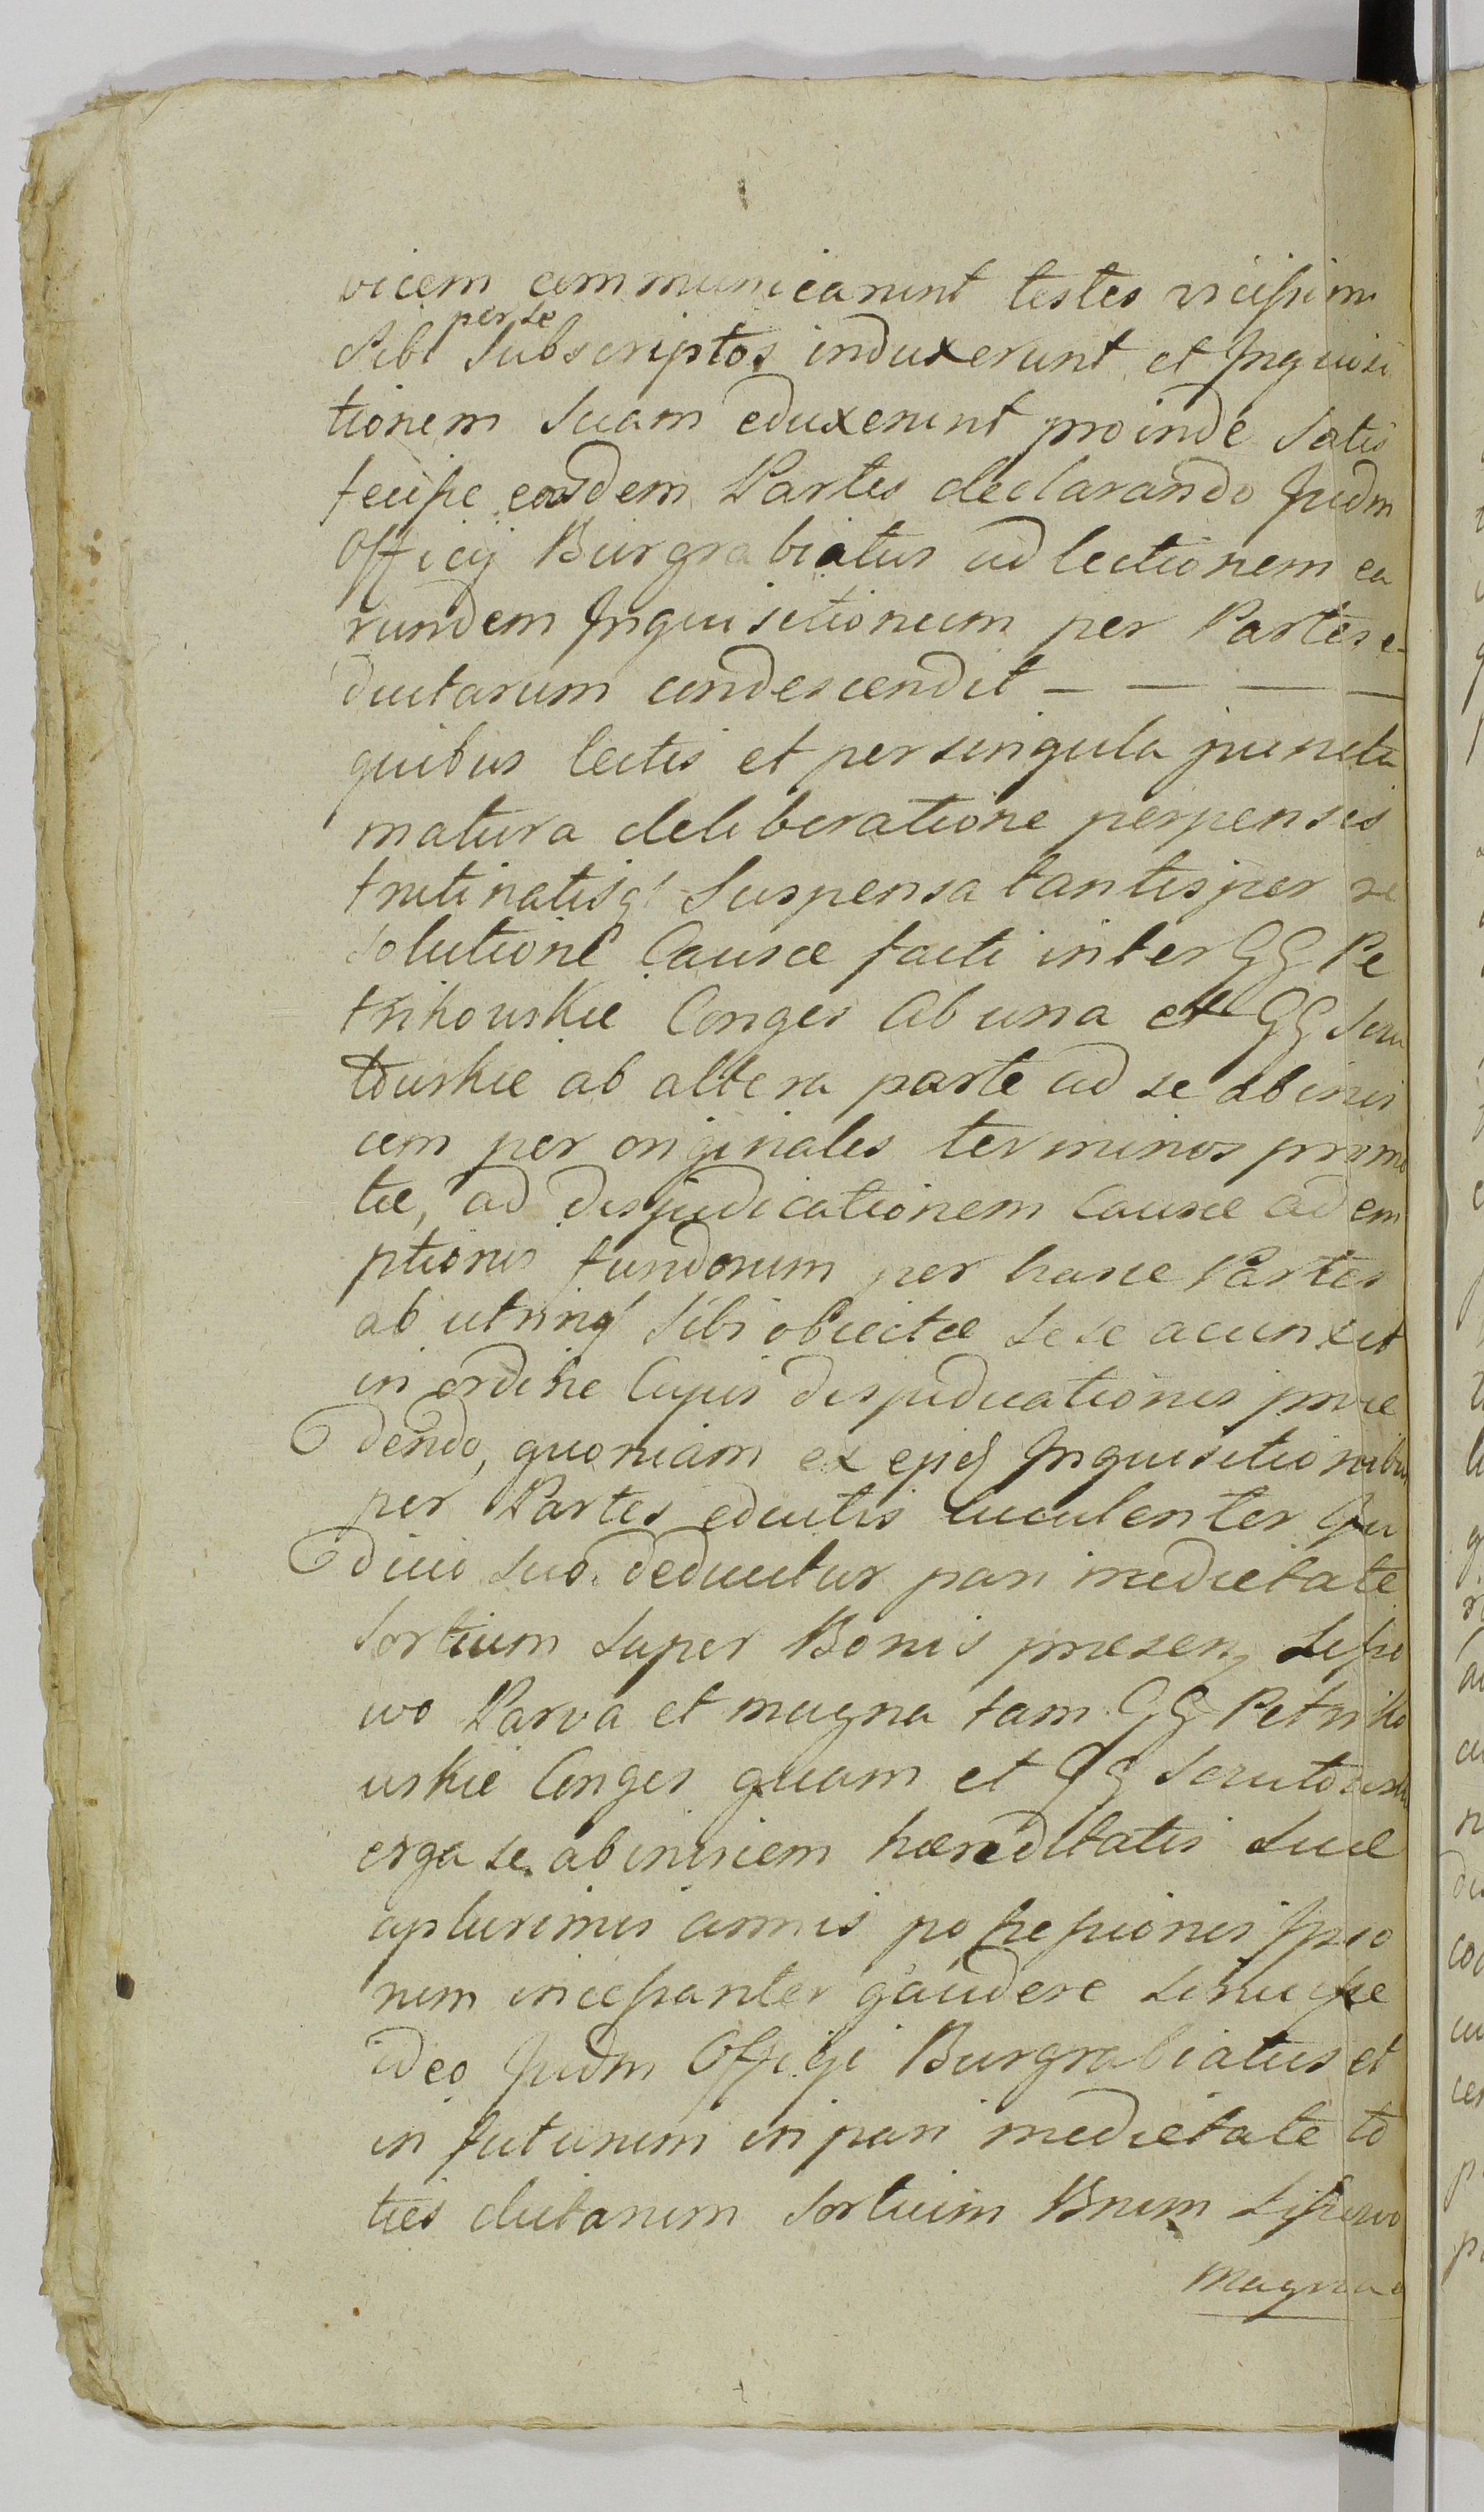 vicem communicarunt testes vicissim
per se
Sibi Subscriptos induxerunt et Inquisi
tionem Suam eduxerunt proinde Satis
fecisse easdem Partes declarando Judm
Officij Burgrabiatus ad lectionem ea
rundem Inquisitionum per Partes e-
ductarum condescendit — — — —
quibus lectis et per singula puncta
matura deliberatione perpensis
trutinatisq Suspensa tantisper re
solutione Causæ facti inter GG Pe
trikouskie Conges ab una et GG Scru
touskie ab altera parte ad se abinvi
cem per originales terminos promo
tæ, ad disjudicationem Causæ adem
ptionis fundorum per hasce Partes
ab utrinq Sibi obiectæ sese accinxit
in ordine Cujus disjudicationis proce
dendo, quoniam ex ejsd Inquisitionibus
per Partes eductis luculenter Ju
dicio suo deducitur pari medietate
Sortium super Bonis præsen Lisso
wo Parva et magna tam GG Petriko
uskie Conges quam et GG Scrutouskie
erga se abinvicem hæreditatis suæ
a plurimis annis possessionis Ipso
rum incessanter gaudere
ideo Judm Officji Burgrabiatus et
in futurum in pari medietate to
ties dictarum Sortium Bnum Lissowo
Magna